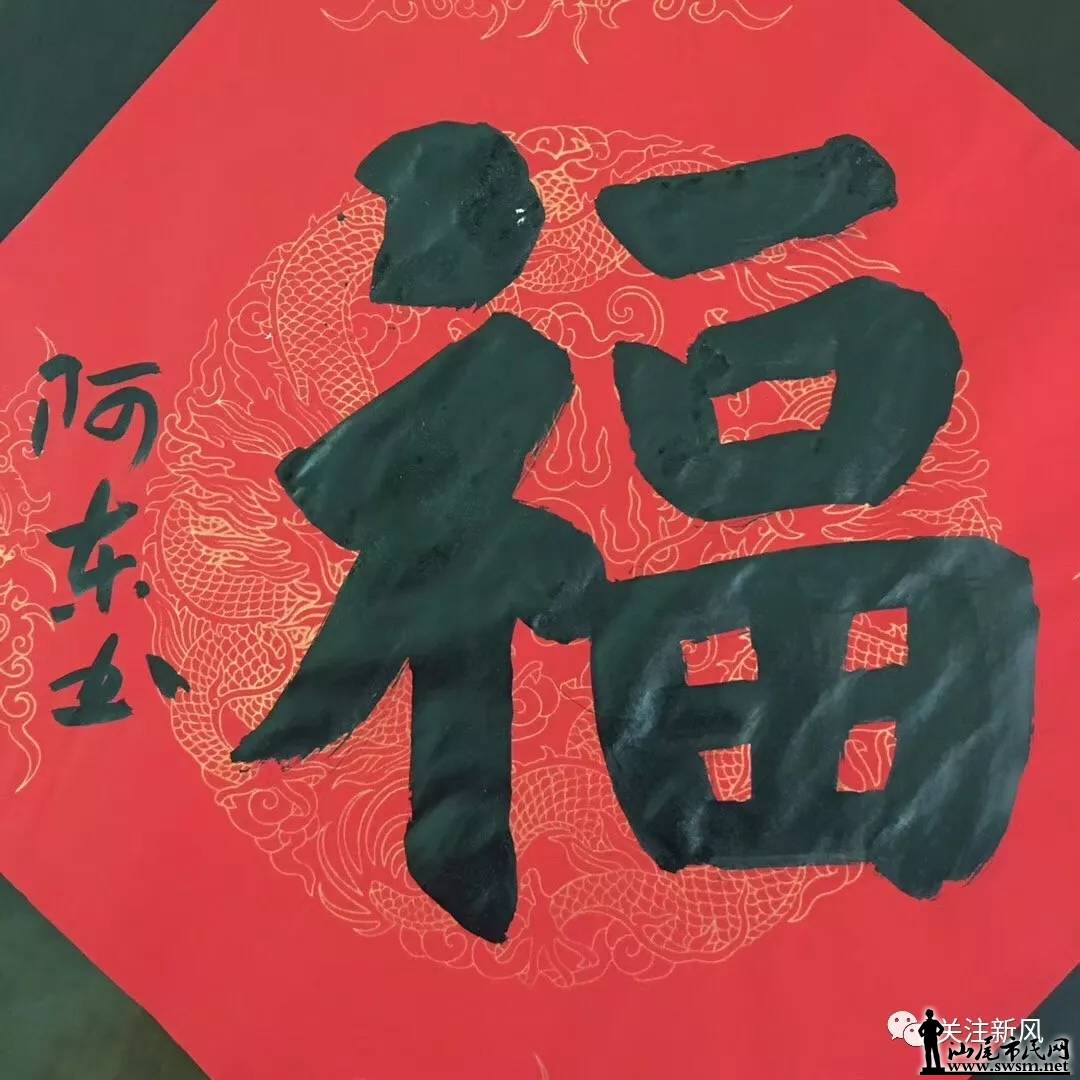 福
阿东书
关注新风
汕尾市民网
www.swsm.net